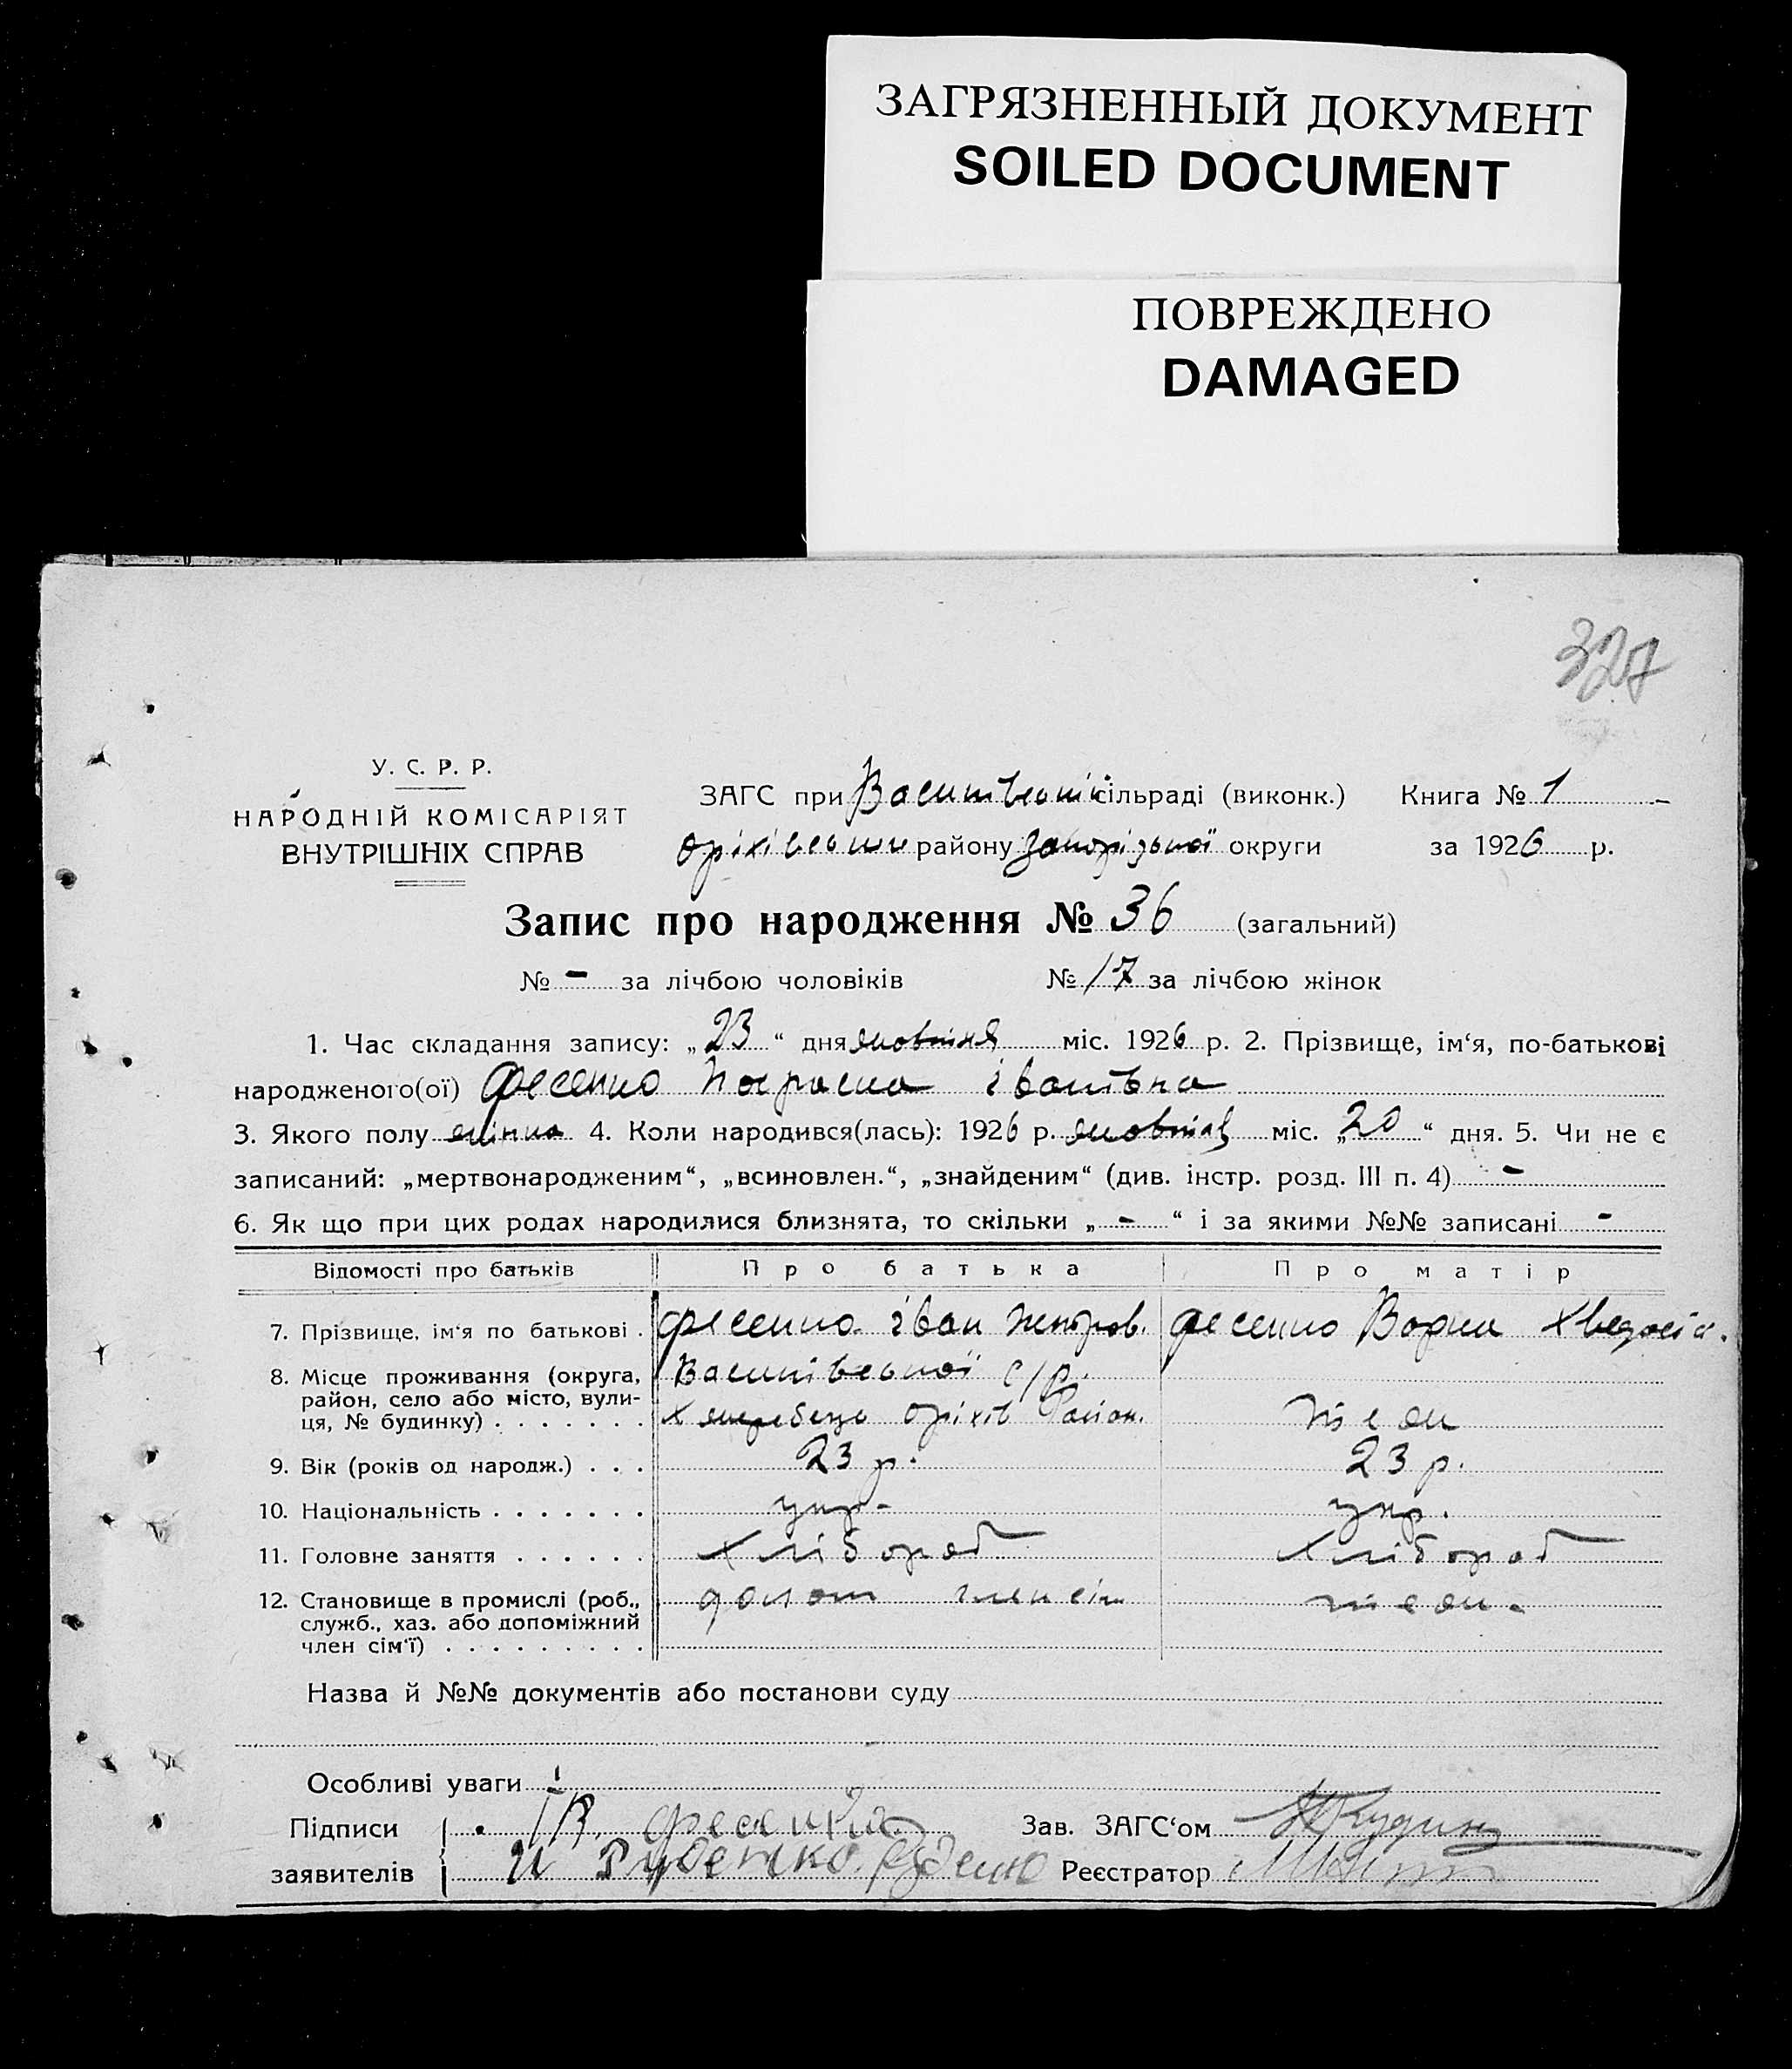 ЗАГРЯЗНЕННЫЙ ДОКУМЕНТ
SOILED DOCUMENT
ПОВРЕЖДЕНО
DAMAGED
327
У. С. Р. Р.
НАРОДНІЙ КОМІСАРІЯТ
ВНУТРІШНІХ СПРАВ
ЗАГС при сільраді (виконк.) Книга № 1
району Запорізької округи за 1926 р.
Запис про народження № 36 (загальний)
№ - за лічбою чоловіків № 17 за лічбою жінок
1. Час складання запису: „23“ дня жовтня міс. 1926 р. 2. Прізвище, ім‘я, по-батькові
народженого(ої) Фесенко Параска Іванівна
3. Якого полу жінка 4. Коли народився(лась): 1926 р. жовтня міс. „20“ дня. 5. Чи не є
записаний: „мертвонародженим“, „всиновлен.“, „знайденим“ (див. інстр. розд. III п. 4) -
6. Як що при цих родах народилися близнята, то скільки „-“ і за якими №№ записані -
Відомості про батьків Про батька Про матір
7. Прізвище, ім‘я по батькові . Фесенко Іван Фесенко
8. Місце проживання (округа,
район, село або місто, вули-
ця, № будинку) . . . . . . . Оріхів
9. Вік (років од народж.) . . . 23 р. 23 р.
10. Національність . . . . . . . укр. укр.
11. Головне заняття . . . . . . Хлібороб Хлібороб
12. Становище в промислі (роб.,
служб., хаз. або допоміжний
член сім‘ї) . . . . . . . . .
Назва й №№ документів або постанови суду
Особливі уваги
Підписи
заявителів
Зав. ЗАГС‘ом
Реєстратор